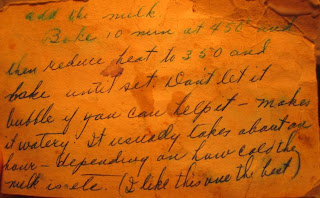 add the milk
Bake 10 min at 450 and
then reduce heat to 350 and
bake until set. Dont let it
bubble if you can help it - makes
it watery. It usually takes about an
hour - depending on how cold the
milk is etc. (I like this one the best)